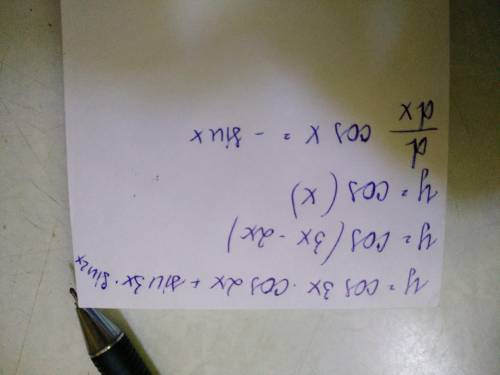 y = cos 3x · cos 2x + sin 3x · sin 2x
y = cos (3x - 2x)
y = cos (x)
d/dx cos x = - sin x